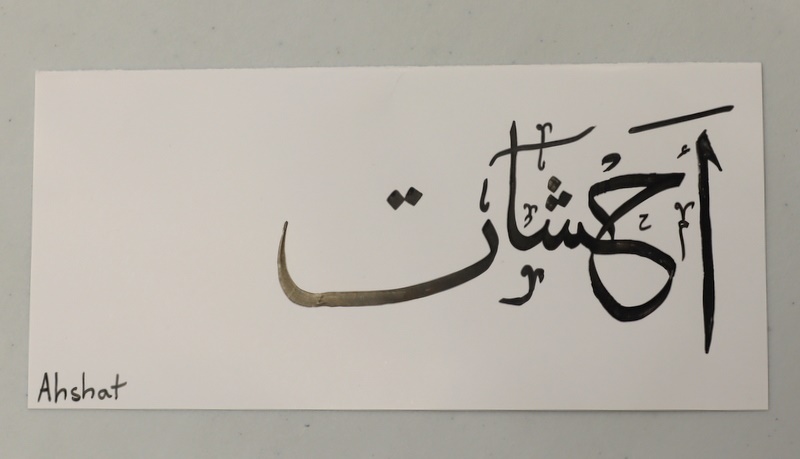 أحشات
Ahshat